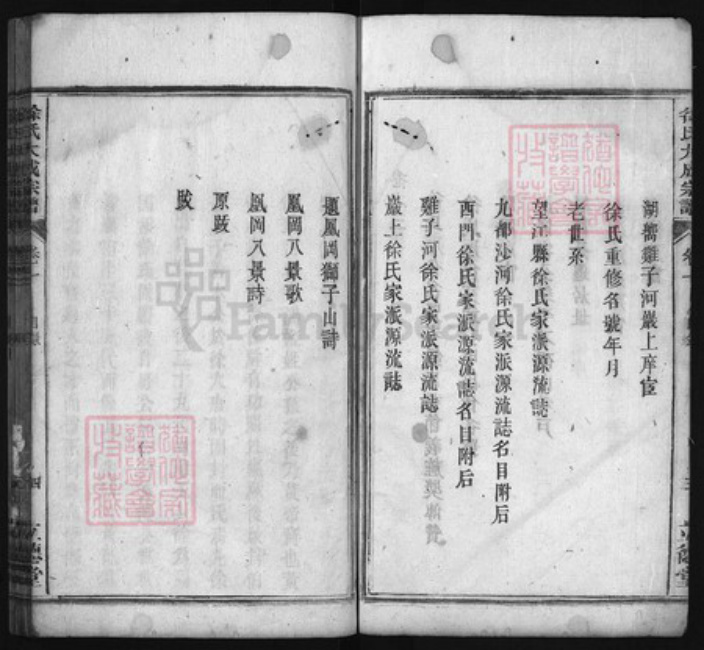 湖嚮雞子河嚴上庠宦
徐氏重修名號年月
老世系
望江縣徐氏家派源流誌
九都沙河徐氏家派源流誌名目附后
西門徐氏家派源流誌名目附后
雞子河徐氏家派源流誌
嚴上徐氏家派源流誌
題鳳岡獅子山詩
鳳岡八景歌
鳳岡八景詩
原跋
跋
徐氏大成宗譜
卷一
目錄
四
立德堂
FamilySearch